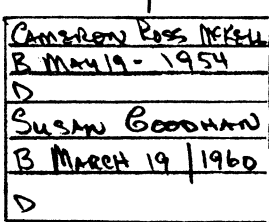 CAMERON ROSS McKELL
B MAY 19 - 1954
D
SUSAN GOODMAN
B MARCH 19 1960
D